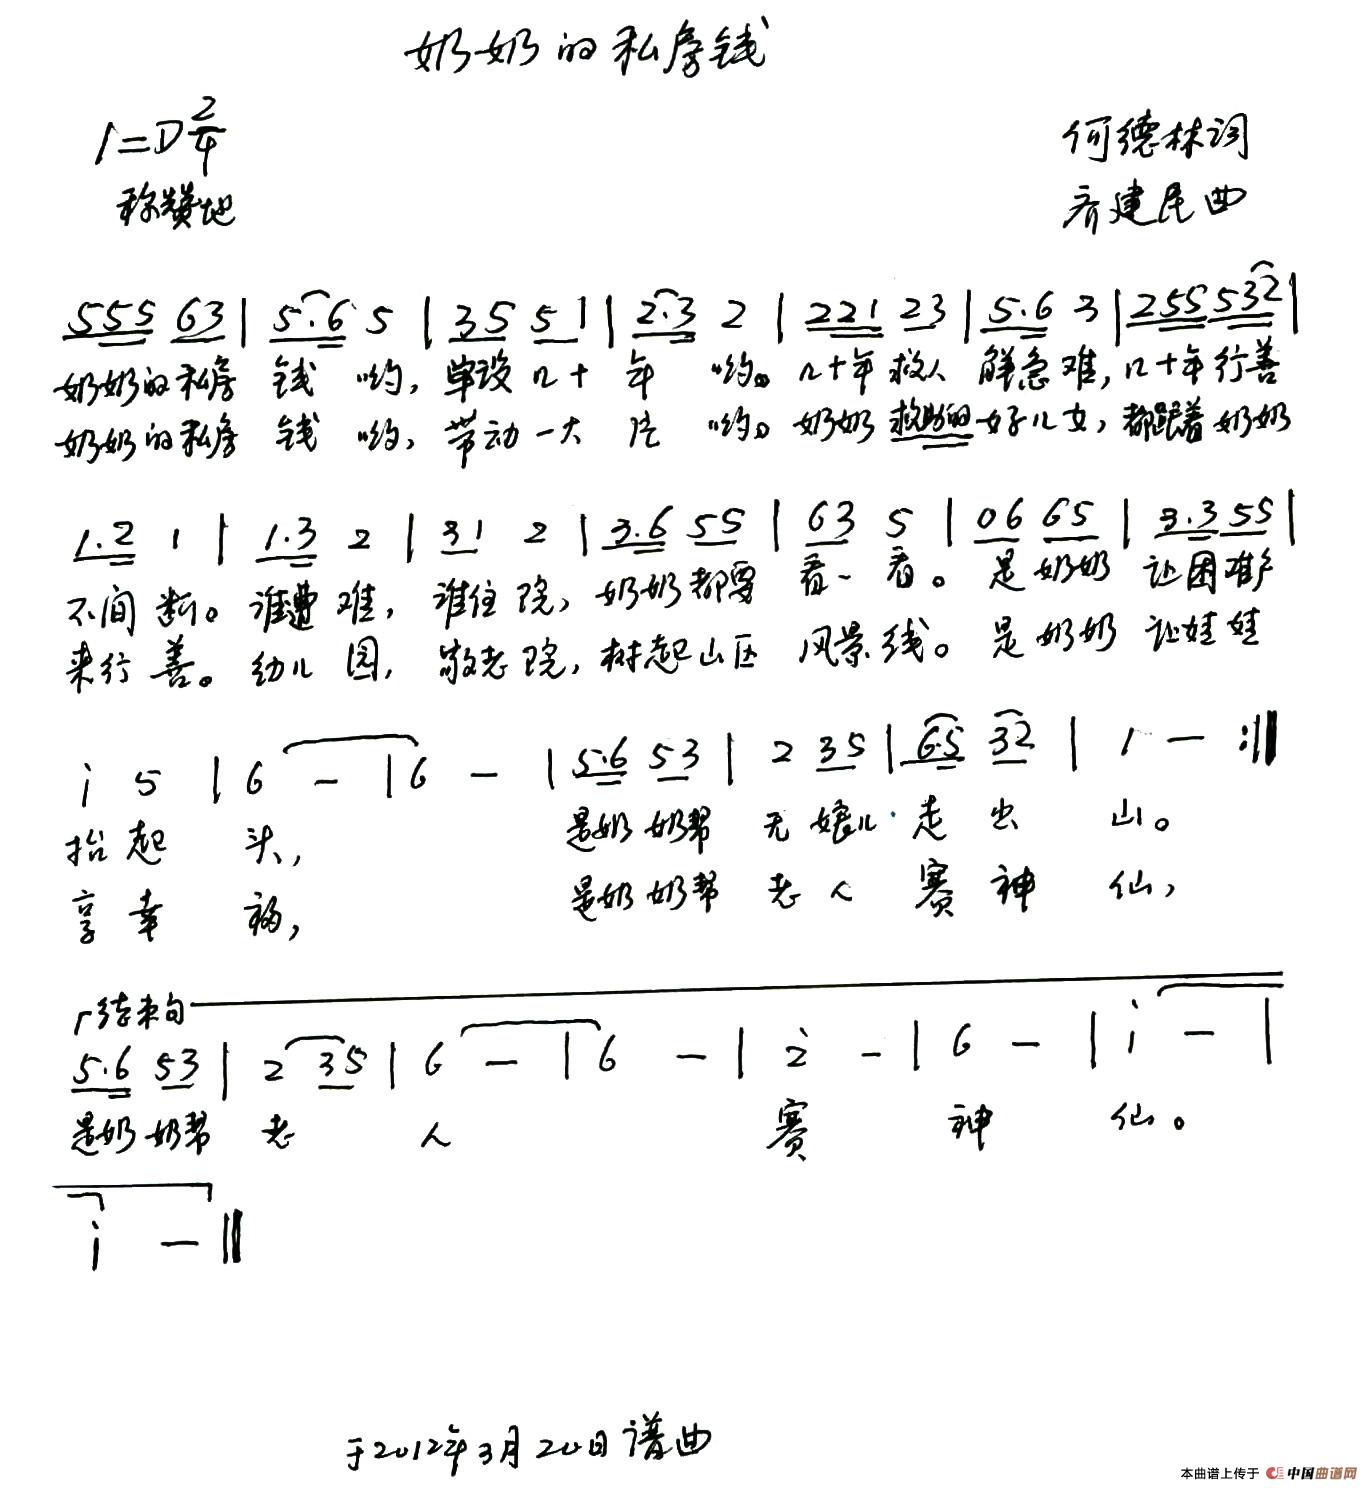 奶奶的私房钱
1=D 2/4
何德林词
称赞地
齐建民曲
555 63 | 5.6 5 | 35 51 | 2.3 2 | 221 23 | 5.6 3 | 255 532 |
奶奶的私房 钱 哟,单设几十 年 哟。几十年救人 解急难,几十年行善
奶奶的私房 钱 哟,带动一大 片 哟。奶奶救助的好儿女,都跟着奶奶
1.2 1 | 1.3 2 | 31 2 | 3.6 55 | 63 5 | 06 65 | 3.3 55 |
不间断。谁遭难,谁住院,奶奶都要 看一看。是奶奶 让困难户
来行善。幼儿园,敬老院,树起山区 风景线。是奶奶 让娃娃
i 5 | 6 - | 6 - | 5.6 53 | 2 35 | 6.5 32 | 1 - :||
抬起 头, 是奶奶帮 无娘儿 走出 山。
享幸 福, 是奶奶帮 老人 赛神 仙,
结束句
5.6 53 | 2 35 | 6 - | 6 - | 2̇ - | 6 - | i - |
是奶奶帮 老 人 赛 神 仙。
i - ||
于2012年3月20日谱曲
本曲谱上传于 中国曲谱网